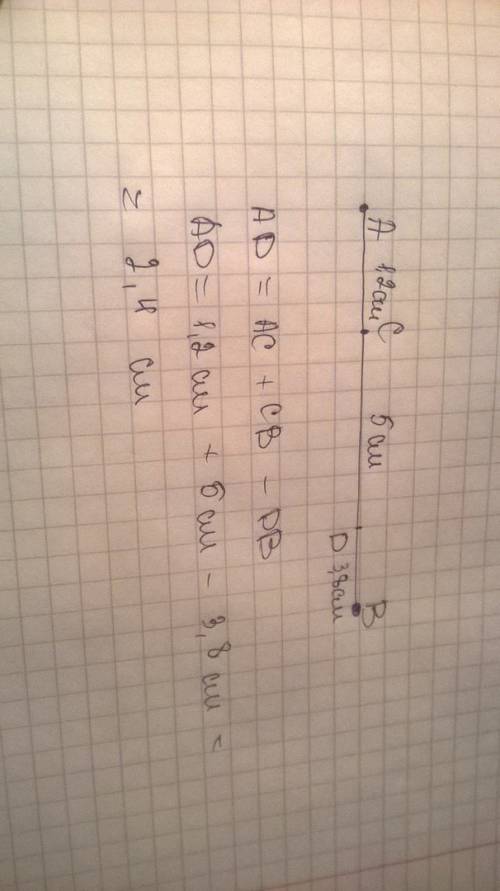 A 1,2 см C 5 см B
D 3,8 см
AD = AC + CB - DB
AD = 1,2 см + 5 см - 3,8 см =
= 2,4 см